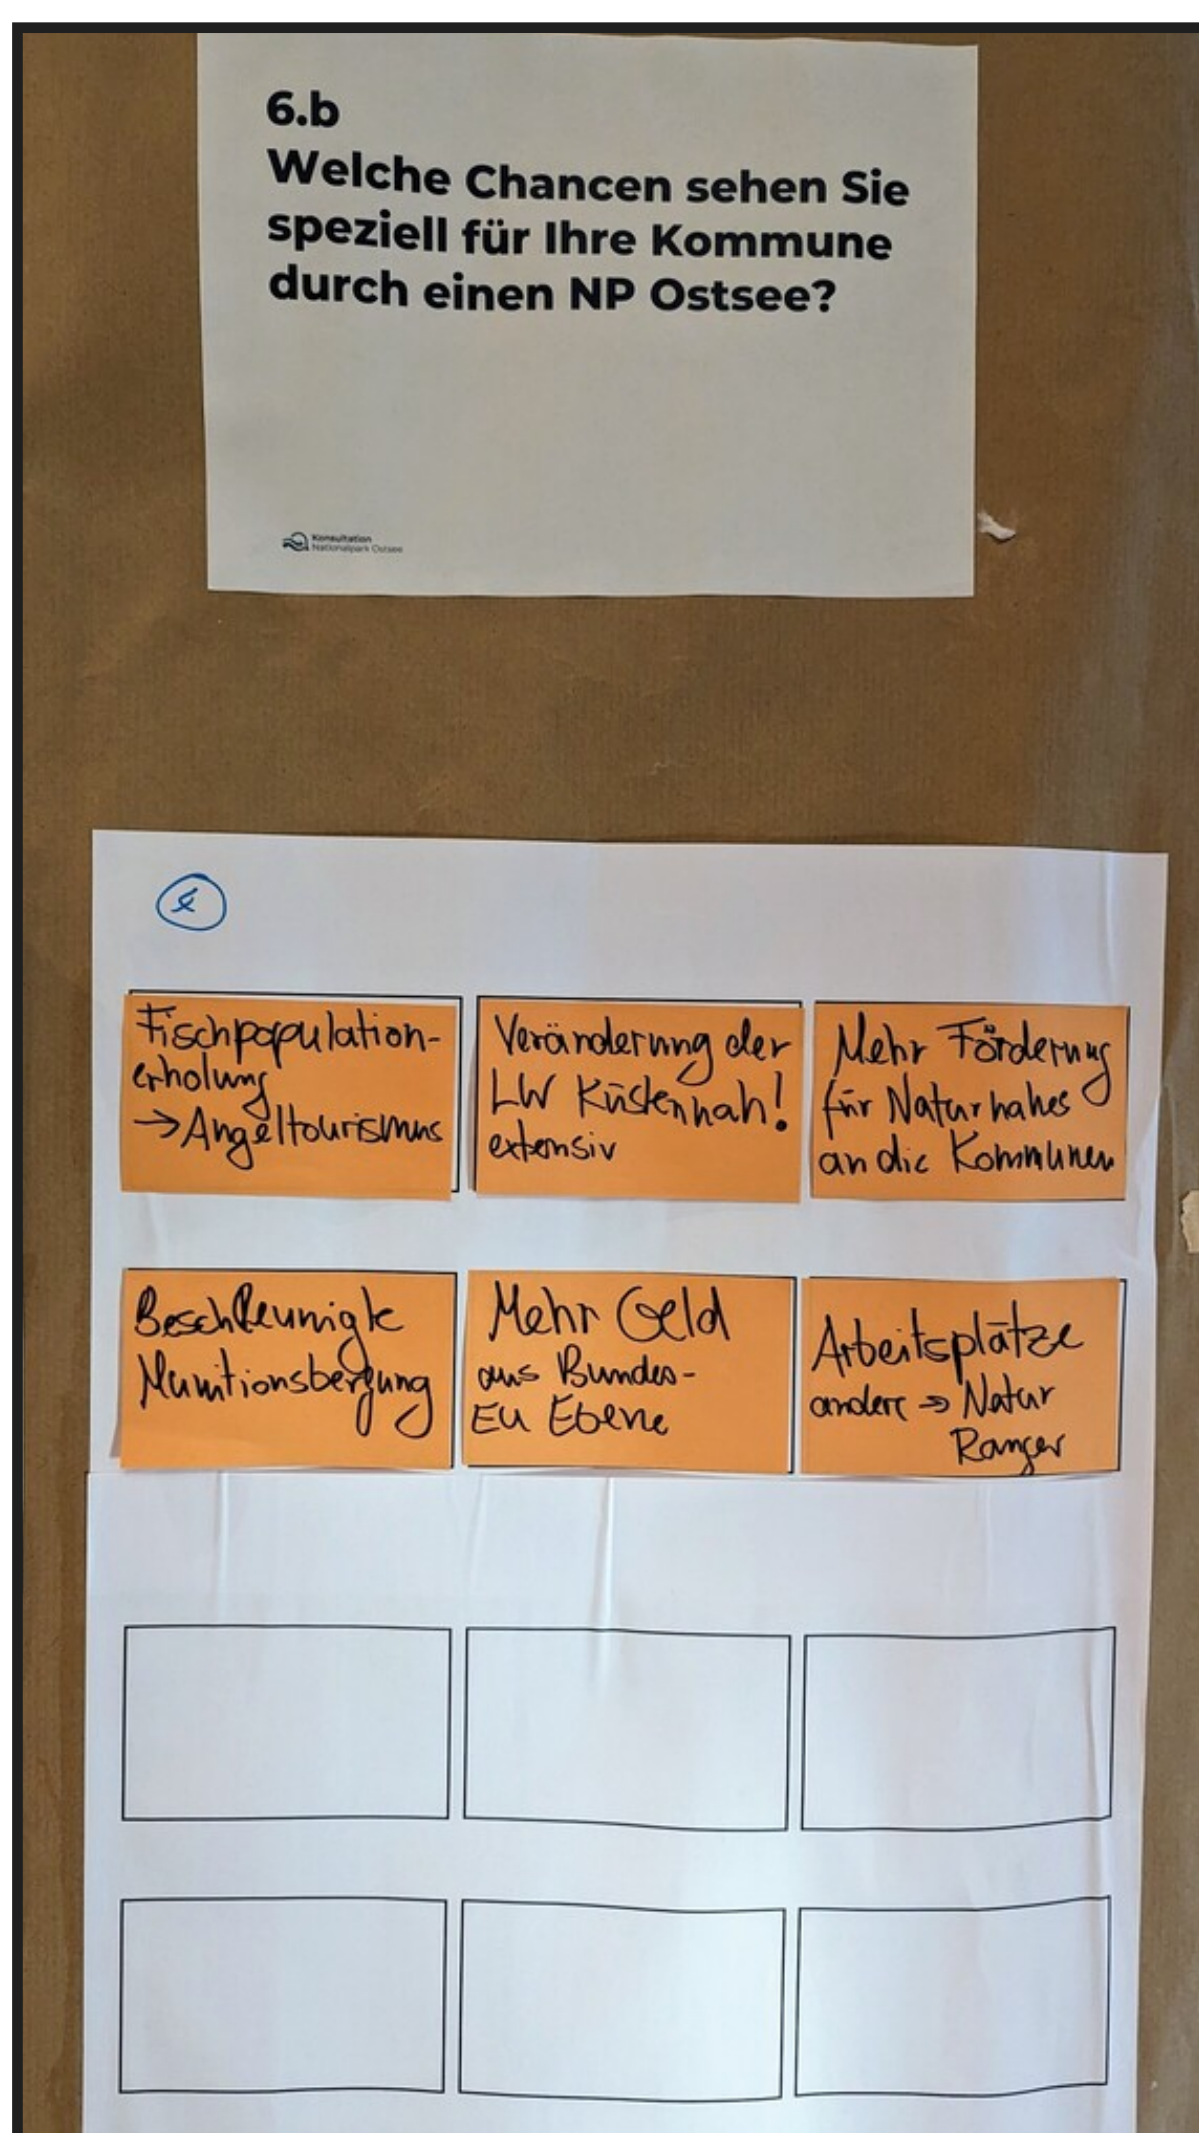 6.b
Welche Chancen sehen Sie
speziell für Ihre Kommune
durch einen NP Ostsee?
Konsultation
Nationalpark Ostsee
Fischpopulation-
erholung
→ Angeltourismus
Veränderung der
LW Küstennah!
extensiv
Mehr Förderung
für Naturnahes
an die Kommunen
Beschleunigte
Munitionsbergung
Mehr Geld
aus Bundes-
EU Ebene
Arbeitsplätze
andere → Natur
Ranger